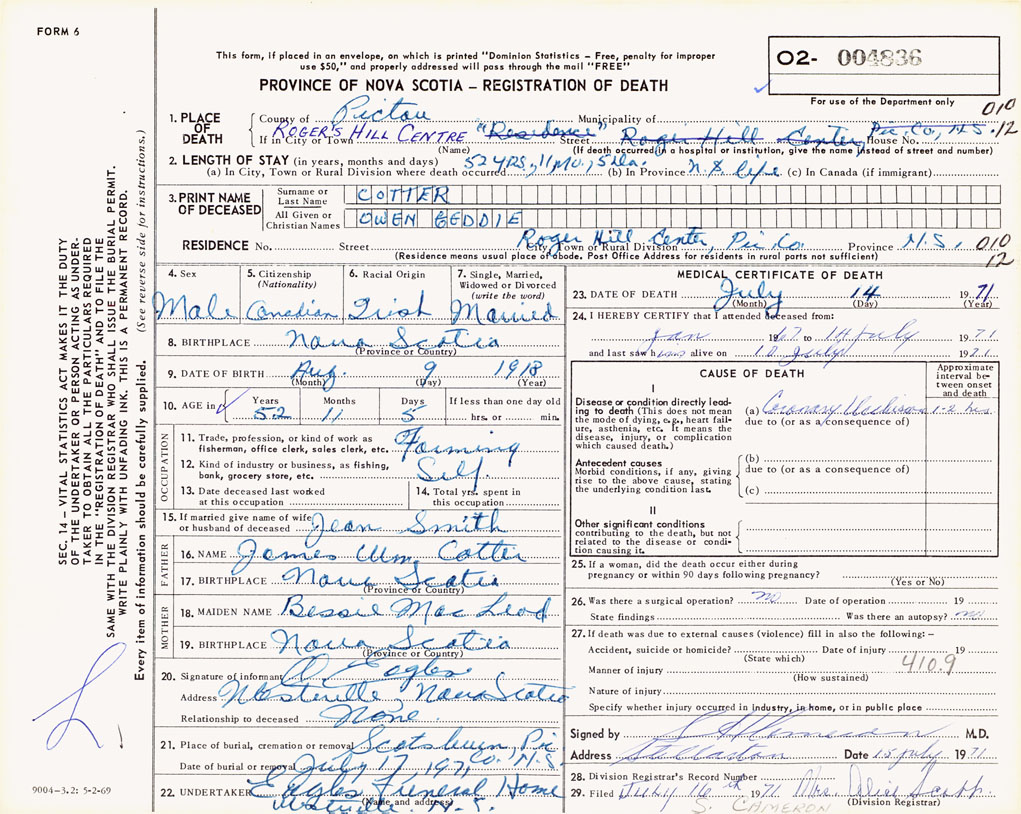 FORM 6
This form, if placed in an envelope, on which is printed "Dominion Statistics – Free, penalty for improper
use $50," and properly addressed will pass through the mail "FREE"
O2- 004836
For use of the Department only
PROVINCE OF NOVA SCOTIA – REGISTRATION OF DEATH
1. PLACE OF DEATH
County of Pictou Municipality of 010
If in City or Town ROGER'S HILL CENTRE "Residence" Street Roger Hill Center Pic. Co, N.S. House No. 12
(Name) (If death occurred in a hospital or institution, give the name instead of street and number)
2. LENGTH OF STAY (in years, months and days) 52 YRS, 11 MO, 5 da.
(a) In City, Town or Rural Division where death occurred (b) In Province N.S. life (c) In Canada (if immigrant)
3. PRINT NAME OF DECEASED
Surname or Last Name COTTER
All Given or Christian Names OWEN GEDDIE
RESIDENCE No. Street Roger Hill Center, Pic. Co. City, Town or Rural Division Province N.S. 010
(Residence means usual place of abode. Post Office Address for residents in rural parts not sufficient) 12
4. Sex Male
5. Citizenship (Nationality) Canadian
6. Racial Origin Irish
7. Single, Married, Widowed or Divorced (write the word) Married
8. BIRTHPLACE Nova Scotia
(Province or Country)
9. DATE OF BIRTH Aug. 9 1918
(Month) (Day) (Year)
10. AGE in Years 52 Months 11 Days 5 If less than one day old hrs. or min.
OCCUPATION
11. Trade, profession, or kind of work as
fisherman, office clerk, sales clerk, etc. Farming
12. Kind of industry or business, as fishing,
bank, grocery store, etc. Self
13. Date deceased last worked
at this occupation
14. Total yrs. spent in
this occupation
15. If married give name of wife
or husband of deceased Jean Smith
FATHER
16. NAME James Wm. Cotter
17. BIRTHPLACE Nova Scotia
(Province or Country)
MOTHER
18. MAIDEN NAME Bessie MacLeod
19. BIRTHPLACE Nova Scotia
(Province or Country)
20. Signature of informant Eagles
Address Westville, Nova Scotia
Relationship to deceased None
21. Place of burial, cremation or removal Scotsburn, Pic. Co. N.S.
Date of burial or removal July 17, 1971
22. UNDERTAKER Eagles Funeral Home
Westville, N.S.
(Name and address)
MEDICAL CERTIFICATE OF DEATH
23. DATE OF DEATH July 14 1971
(Month) (Day) (Year)
24. I HEREBY CERTIFY that I attended deceased from:
Jan 1967 to 14 July 1971
and last saw him alive on 10 July 1971
CAUSE OF DEATH
Approximate interval between onset and death
I
Disease or condition directly leading to death (This does not mean the mode of dying, e.g., heart failure, asthenia, etc. It means the disease, injury, or complication which caused death.)
(a) Coronary Occlusion 1-2 hrs
due to (or as a consequence of)
Antecedent causes
Morbid conditions, if any, giving rise to the above cause, stating the underlying condition last.
(b)
due to (or as a consequence of)
(c)
II
Other significant conditions
contributing to the death, but not related to the disease or condition causing it.
25. If a woman, did the death occur either during
pregnancy or within 90 days following pregnancy?
(Yes or No)
26. Was there a surgical operation? no Date of operation 19
State findings Was there an autopsy? no
27. If death was due to external causes (violence) fill in also the following: –
Accident, suicide or homicide? Date of injury 19
(State which) 410.9
Manner of injury
(How sustained)
Nature of injury
Specify whether injury occurred in industry, in home, or in public place
Signed by M.D.
Address Stellarton Date 15 July 1971
28. Division Registrar's Record Number
29. Filed July 16th 1971 Mrs. Alice
S. CAMERON (Division Registrar)
SEC. 14 – VITAL STATISTICS ACT MAKES IT THE DUTY
OF THE UNDERTAKER OR PERSON ACTING AS UNDER-
TAKER TO OBTAIN ALL THE PARTICULARS REQUIRED
IN THE "REGISTRATION OF DEATH" AND TO FILE THE
SAME WITH THE DIVISION REGISTRAR WHO SHALL ISSUE THE BURIAL PERMIT.
WRITE PLAINLY WITH UNFADING INK. THIS IS A PERMANENT RECORD.
Every item of information should be carefully supplied. (See reverse side for instructions.)
9004-3.2: 5-2-69